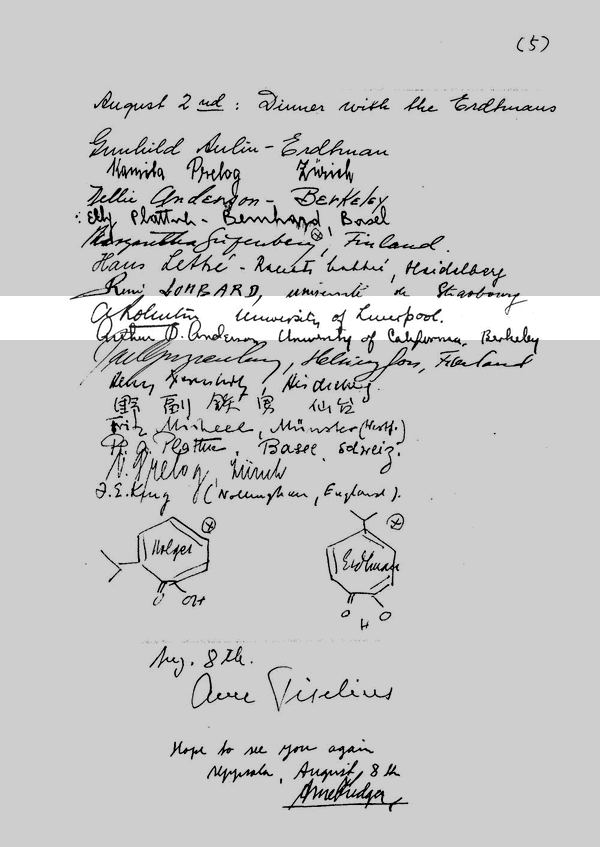 (5)
August 2nd : Dinner with the Erdtmans
Gunhild Aulin-Erdtman
Kamila Prelog Zürich
Nellie Anderson - Berkeley
Elly Plattner-Bernhard, Basel
Margaretha Gripenberg, Finland.
Hans Lettré - Renate Lettré, Heidelberg
René LOMBARD, université de Strasbourg
A Robertson University of Liverpool.
Arthur D. Anderson University of California, Berkeley
Gripenberg, Helsingfors, Finland
Heidelberg.
野副鉄男 仙台
Fritz Micheel, Münster (Westf.)
Pl. A. Plattner, Basel, Schweiz.
V. Prelog, Zürich
F.E. King (Nottingham, England).
Holger
O OH
Erdtman
O O
H
Aug. 8th.
Arne Tiselius
Hope to see you again
Uppsala, August, 8th
Arne Fredga